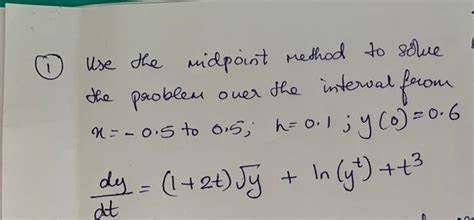 ① Use the midpoint method to solve
the problem over the interval from
x = -0.5 to 0.5; h=0.1 ; y(0)=0.6
dy/dt = (1+2t)√y + ln(y^t) + t^3